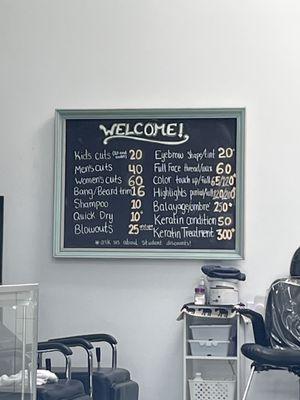 WELCOME!
Kids cuts 20
Men's cuts 40
Women's cuts 60
Bang/Beard trim 16
Shampoo 10
Quick Dry 10+
Blowouts 25
Eyebrow Shape/tint 20+
Full Face thread/wax 60
Color touch up/full 65/120+
Highlights partial/full
Balayage/ombre 250+
Keratin Condition 50
Keratin Treatment 300+
*ask us about student discounts!